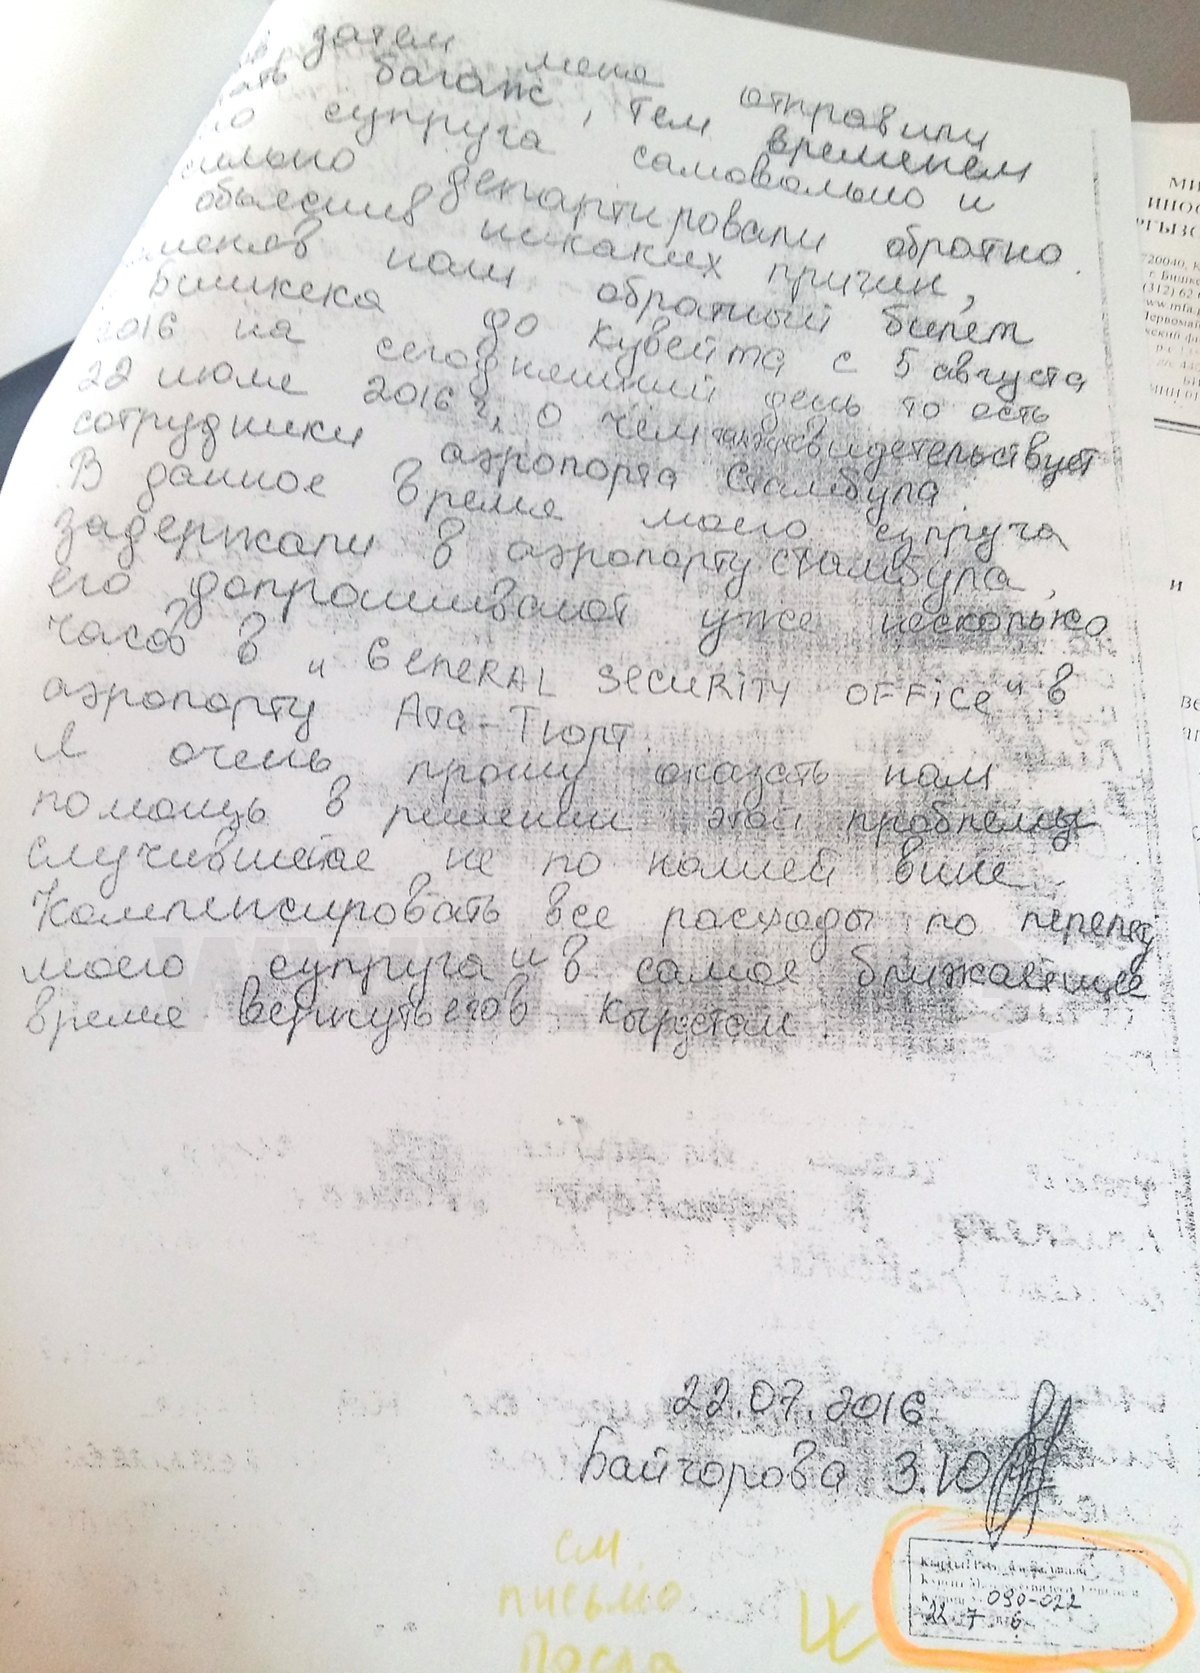 затем меня отправили
багаж, тем временем
супруга самовольно и
сильно депортировали обратно.
объяснив никаких причин,
нам обратный билет
Бишкека до Кувейта с 5 августа
2016 на сегодняшний день то есть
22 июля 2016 г, о чём также свидетельствует
сотрудники аэропорта Стамбула.
В данное время моего супруга
задержали в аэропорту Стамбула,
его допрашивают уже несколько
часов в "GENERAL SECURITY OFFICE" в
аэропорту Ата-Тюрт.
Я очень прошу оказать нам
помощь в решении этой проблемы
случившейся не по нашей вине
Компенсировать все расходы по перелёту
моего супруга и в самое ближайшее
время вернуть его в Кыргстан.
22.07.2016
Байчорова З.Ю
090-022
22 7 6
см.
письмо
Посла
МИ
ИНОС
РГЫЗС
720040, К
г. Бишке
(312) 62
www.mfa.
Первома
и